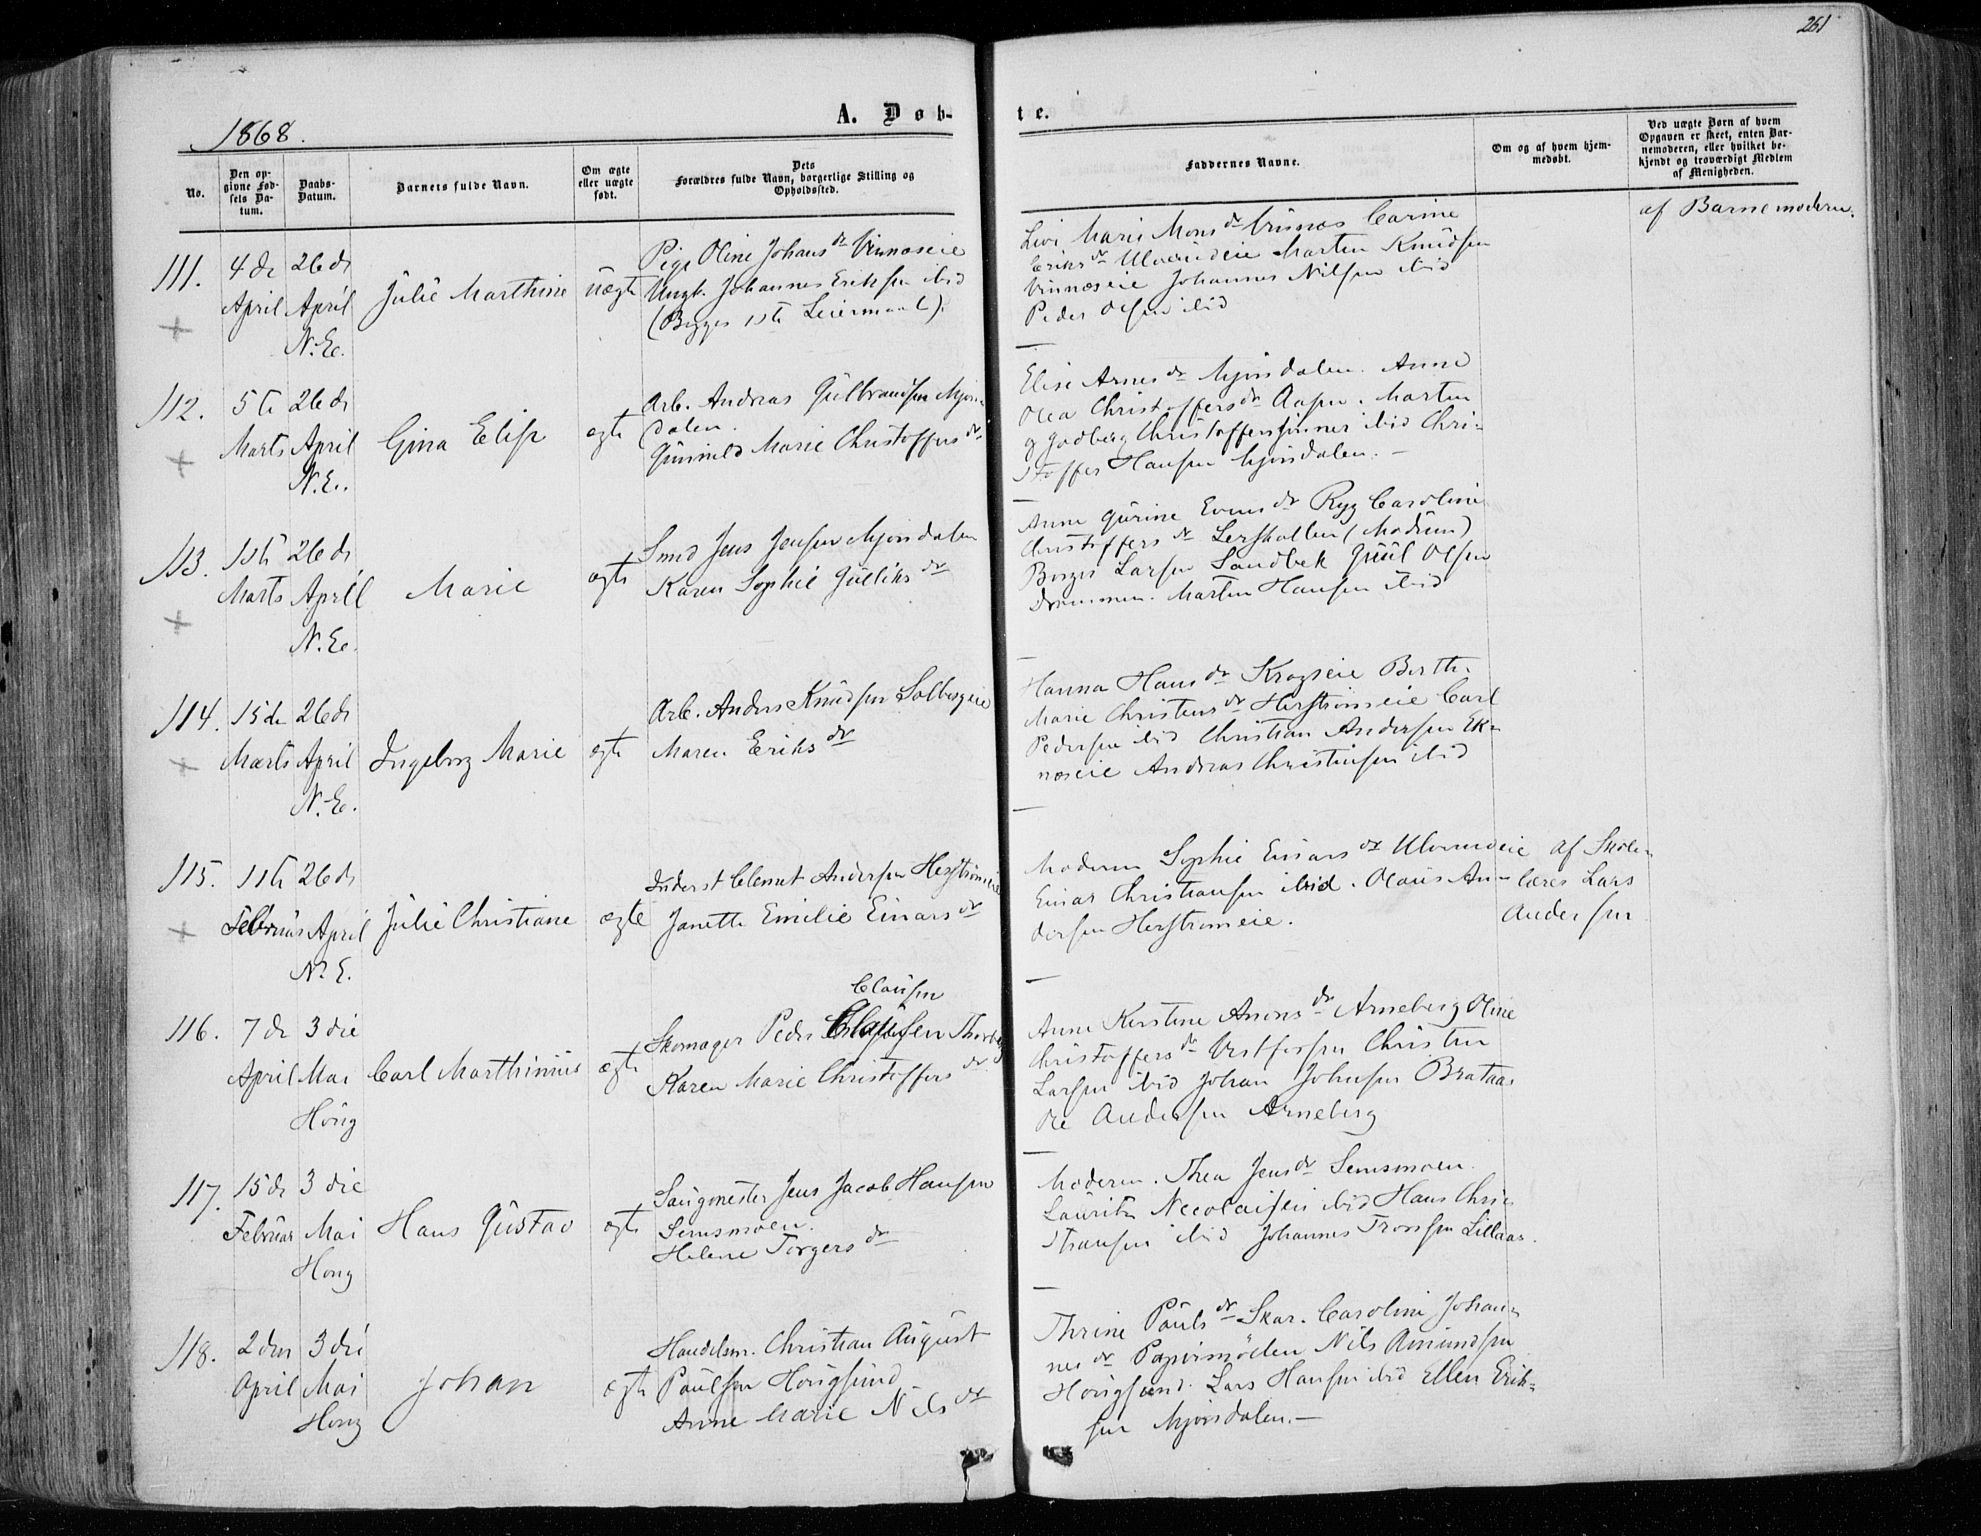 261
1868.
A. Døb-
te.
No.
Den op-
givne Fød-
sels Da-
tum.
Daabs-
Datum.
Barnets fulde Navn.
Om ægte
eller uægte
født.
Dets
Forældres fulde Navn, borgerlige Stilling og
Opholdssted.
Faddernes Navne.
Om og af hvem hjem-
medøbt.
Ved uægte Børn af hvem
Opgaven er skeet, enten Bar-
nemoderen, eller hvilket be-
kjendt og troværdigt Medlem
af Menigheden.
111.
4de
April
26de
April
N.E.
Julie Marthine
uægte
Pige Oline Johansdr Vinnæseie
Ungk. Johannes Eriksen ibid
(Begges 1ste Leiermaal).
Livi Marie Monsdr Vinnæs Carine
Eriksdr Ulverudeie Marten Knudsen
Vinnæseie Johannes Nilsen ibid
Peder Olsen ibid
af Barnemoderen.
112.
5te
Marts
26de
April
N.E.
Gina Elise
ægte
Arb. Andreas Gulbrandsen Mjøn-
dalen.
Gunnild Marie Christoffersdr
Elise Arnesdr Mjøndalen. Anne
Olea Christoffersdr Aasen. Marten
og Gudberg Christoffersønner ibid Chri-
stoffer Hansen Mjøndalen. —
113.
11te
Marts
26de
April
N.E.
Marie
ægte
Smed Jens Jensen Mjøndalen
Karen Sophie Gulliksdr
Anne Gurine Evensdr Ryg Caroline
Christoffersdr Lerskallen (Modum)
Borger Larsen Sandbek Juul Olsen
Drammen. Marten Hansen ibid
114.
15de
Marts
26de
April
N.E.
Ingeborg Marie
ægte
Arb. Anders Knudsen Solbergeie
Maren Eriksdr
Hanna Hansdr Krogseie Berthe
Marie Christensdr Herstrømeie Carl
Pedersen ibid Christian Andersen Ek-
næseie Andreas Christensen ibid
115.
11te
Februar
26de
April
N.E.
Julie Christiane
ægte
Inderst Clemet Andersen Herstrømeie
Janette Emilie Einarsdr
Moderen Sophie Einarsdr Ulverudeie
Einar Christiansen ibid. Olaus An-
dersen Herstrømeie.
af Skole-
lærer Lars
Andersen
116.
7de
April
3die
Mai
Houg
Carl Marthinius
ægte
Clausen
Skomager Peder Clausen Thorberg
Karen Marie Christoffersdr
Anne Kirstine Amonsdr Arneberg Oline
Christoffersdr Vestfossen Christen
Larsen ibid Johan Johnsen Brataas
Ole Andersen Arneberg
117.
15de
Februar
3die
Mai
Houg
Hans Gustav
ægte
Saugmester Jens Jacob Hansen
Semsmoen.
Helene Torgersdr
Moderen. Thea Jensdr Semsmoen.
Lauritz Nicolaisen ibid Hans Chri-
stiansen ibid Johannes Tronsen Lillaas.
118.
2den
April
3die
Mai
Houg
Johan
ægte
Handelsm. Christian August
Paulsen Hougsund
Anne Marie Nilsdr
Thrine Paulsdr Skar. Caroline Johan-
nesdr Papirmøllen Nils Amundsen
Hougsund. Lars Hansen ibid Ellen Erik-
sen Mjøndalen. —